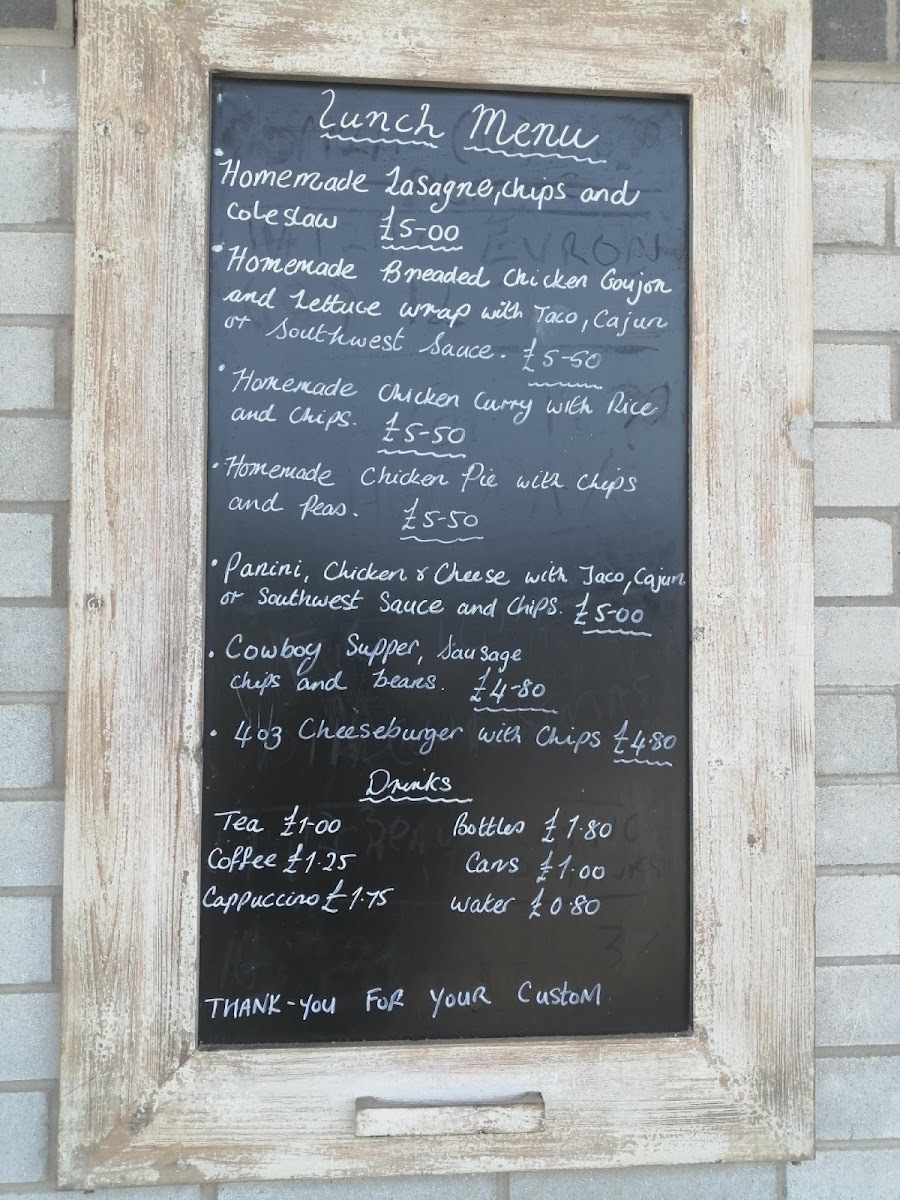 Lunch Menu
• Homemade Lasagne, chips and
Coleslaw £5-00
• Homemade Breaded Chicken Goujon
and Lettuce wrap with Taco, Cajun
or Southwest Sauce. £5-50
• Homemade Chicken Curry with Rice
and Chips. £5-50
• Homemade Chicken Pie with Chips
and Peas. £5-50
• Panini, Chicken & Cheese with Taco, Cajun
or Southwest Sauce and Chips. £5-00
• Cowboy Supper, Sausage
Chips and beans. £4-80
• 4oz Cheeseburger with Chips £4.80
Drinks
Tea £1-00 Bottles £1.80
Coffee £1.25 Cans £1.00
Cappuccino £1.75 Water £0.80
THANK-YOU FOR YOUR CUSTOM